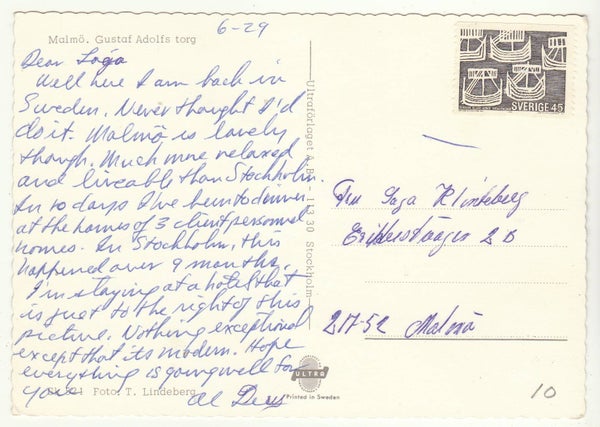 6-29
Malmö. Gustaf Adolfs torg
Dear Saga
Well here I am back in
Sweden. Never thought I'd
do it. Malmö is lovely
though. Much more relaxed
and liveable than Stockholm.
In 10 days I've been to dinner
at the homes of 3 client personnel
homes. In Stockholm, this
happened over 9 months.
I'm staying at a hotel that
is just to the right of this
picture. Nothing exceptional
except that its modern. Hope
everything is going well for
you
Al
Foto: T. Lindeberg
Ultraförlaget A.B. - 113 30 Stockholm
ULTRA
Printed in Sweden
SVERIGE 45
Saga Klinteberg
2 B
217-52 Malmö
10